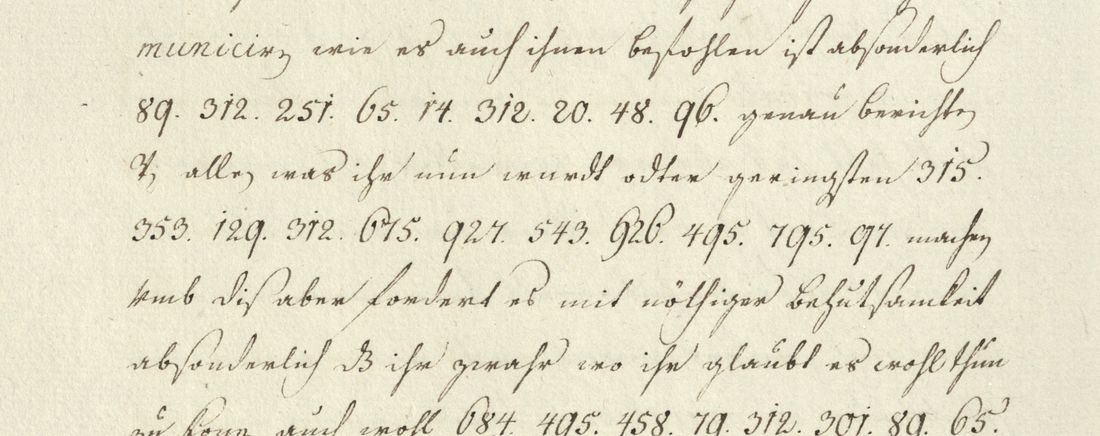 municirn wie es auch ihnen befohlen ist absonderlich
89. 312. 251. 65. 14. 312. 20. 48. 96. genau berichten
alles was ihr nun wurdt odter geringsten 315.
353. 129. 312. 675. 927. 543. 626. 495. 795. 97. machen
vmb diß aber fordert es mit nöthiger behutsamkeit
absonderlich dz ihr zwahr wo ihr glaubt es wohl thun
zu könn auch wohl 684. 495. 458. 79. 312. 301. 89. 65.